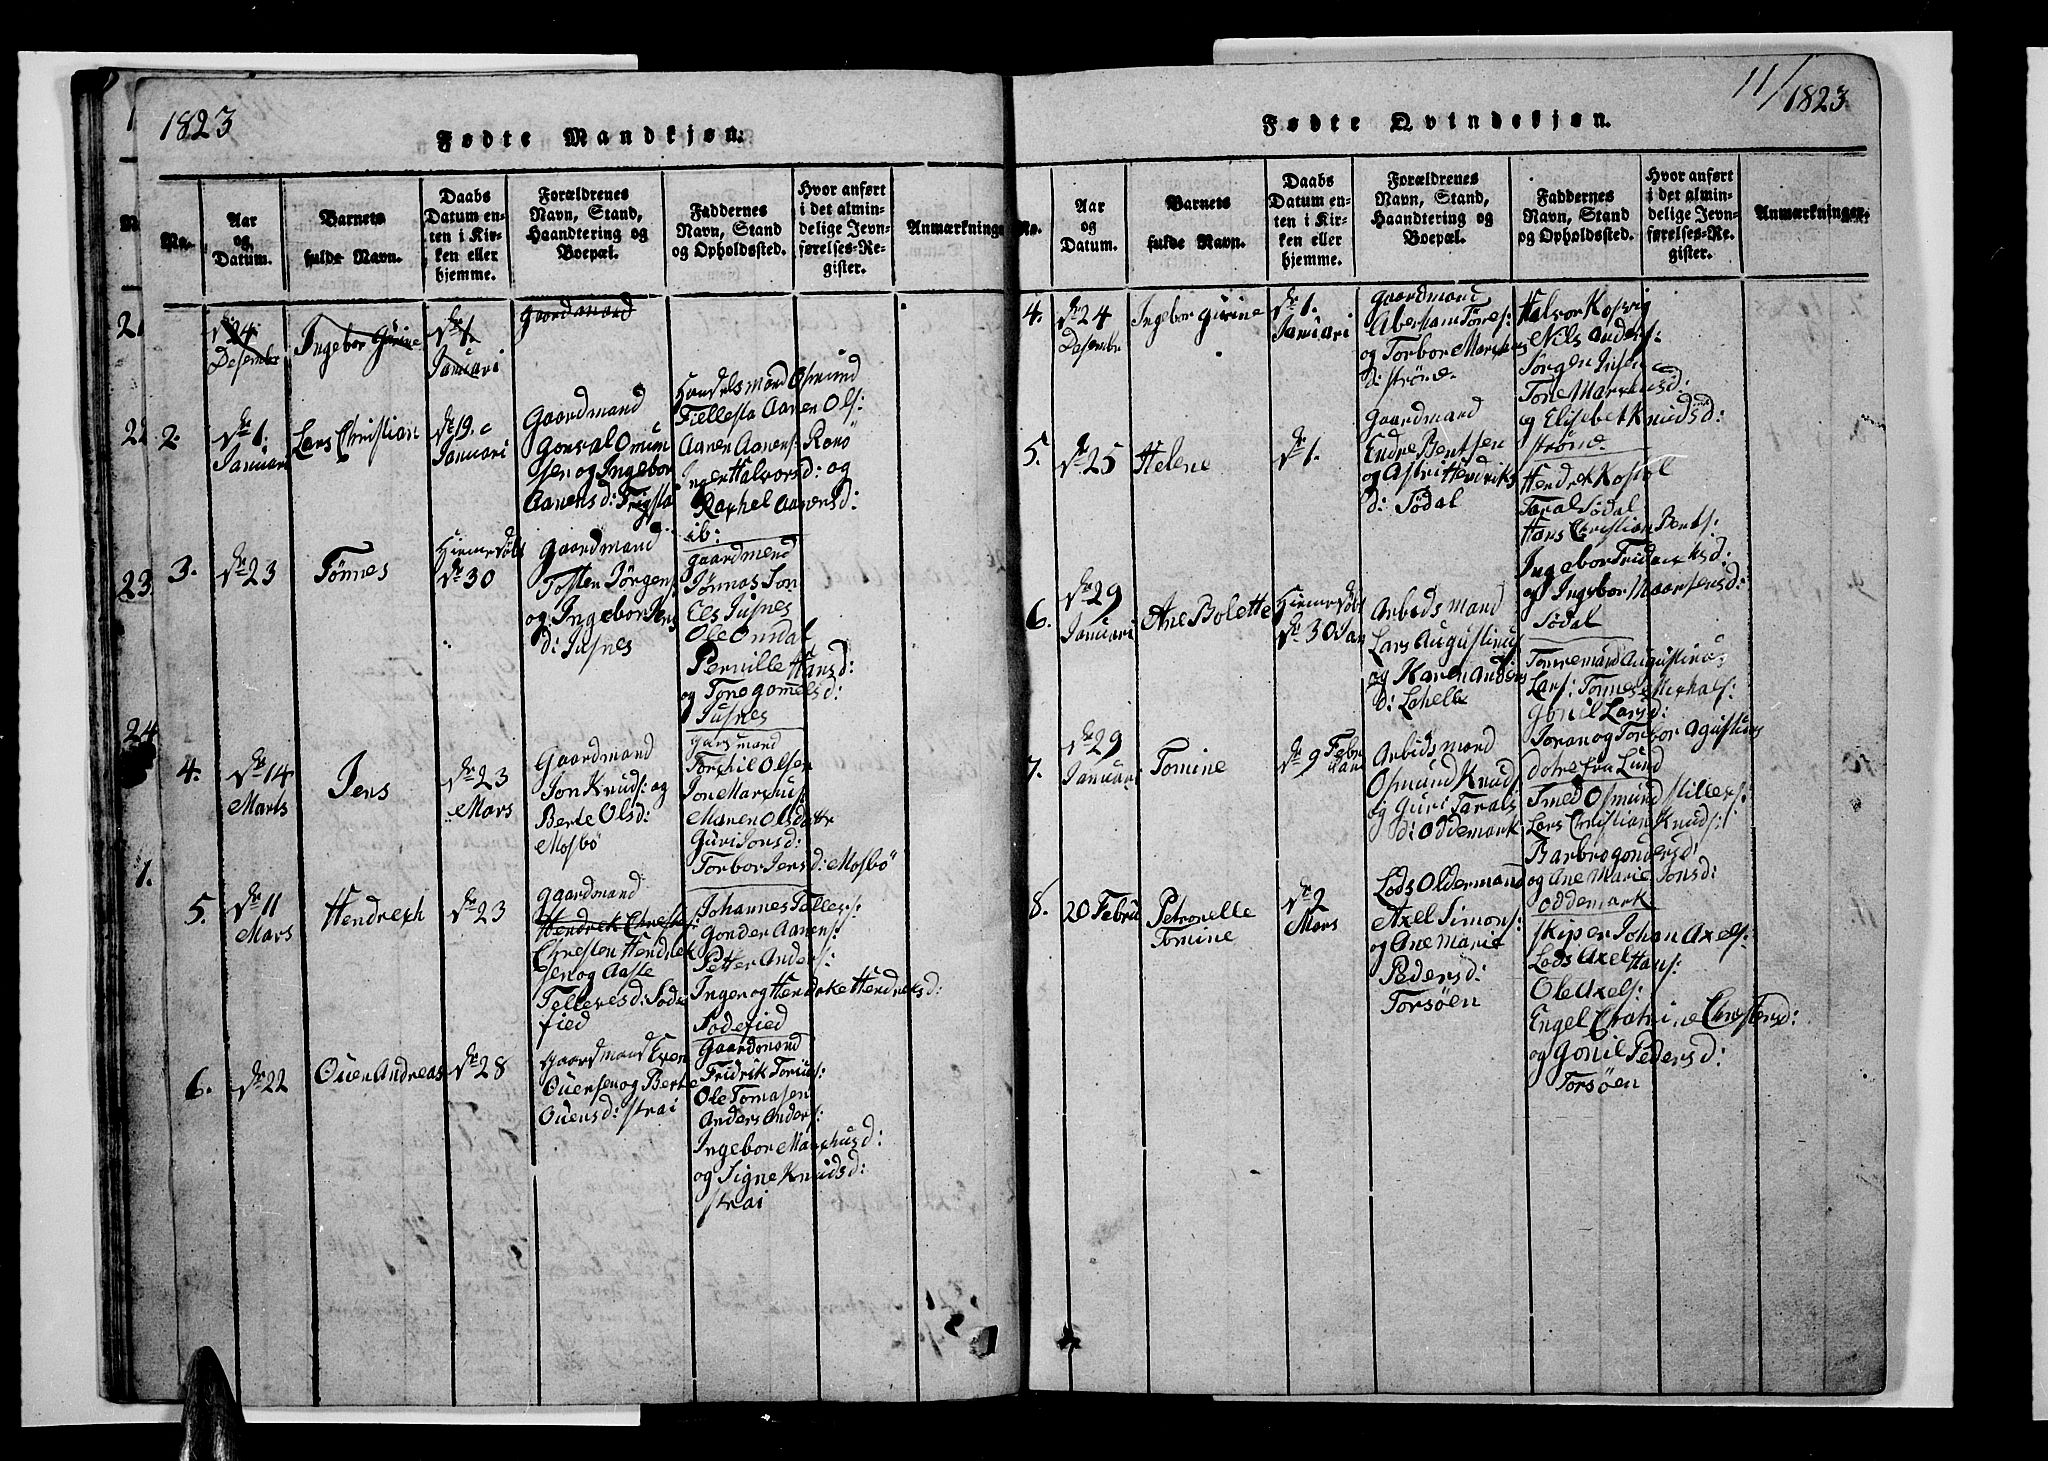 1823
Fødte Mandkjøn.
No.
Aar
og
Datum.
Barnets
fulde Navn.
Daabs
Datum en-
ten i Kir-
ken eller
hjemme.
Forældrenes
Navn, Stand,
Haandtering og
Boepæl.
Faddernes
Navn, Stand
og Opholdssted.
Hvor anført
i det almin-
delige Jevn-
førelses-Re-
gister.
Anmærkninge
21
22
23
24
1.
24
Desembr
Ingebor Gurine
1.
Januari
Gaardmand
2.
dr 1.
Januari
Lars Christian
dr 19.
Januari
Gaardmand
Gonval Omun
sen og Ingebor
Aanensd:
Handelsmand Osmund
Fiellesta Aanen Ols:
Aanen Aanens: Ronö
Inger Halvorsd: og
Rachel Aanensd:
ib:
3.
dr 23
Tönnes
Hiemedöbt
dr 30
Gaardmand
Tosten Jörgens:
og Ingebor Jens
d: Jusnes
Gaardmend
Tönnas
Els Jusnes
Ole Omdal
Pernille Hansd:
og Tone Gomelsd:
Jusnes
4.
dr 14
Marts
Jens
dr 23
Mars
Gaardmand
Jon Knuds: og
Berte Olsd:
Mosbö
Garsmand
Torkil Olsen
Jon Marchus
Maren Olsdatr
Guri Jonsd:
Torbor Jensd: Mosbö
5.
dr 11
Mars
Hendrich
dr 23
Gaardmand
Hendrek
Christen Hendrek
sen og Aaste
Tellevesd: Söd
fied
Johannes Tellefs:
Gonder Aanens:
Petter Anders:
Inger og Hendrke Hendreksd:
Södefied
6.
dr 22
Ouen Andreas
dr 28
Gaardmand Even
Ouensen og Berte
Ouensd: Strai
Gaardmand
Fridrik Torius:
Ole Tomasen
Anders Anders:
Ingebor Marchusd:
og Signe Knudsd:
Strai
11/1823
Fødte Qvindekjøn.
No.
Aar
og
Datum.
Barnets
fulde Navn.
Daabs
Datum en-
ten i Kir-
ken eller
hjemme.
Forældrenes
Navn, Stand,
Haandtering og
Boepæl.
Faddernes
Navn, Stand
og Opholdssted.
Hvor anført
i det almin-
delige Jevn-
førelses-Re-
gister.
Anmærkninger.
4.
dr 24
Desembr
Ingebor Gurine
dr 1.
Januari
Gaardmand
Aberham Tönes:
og Torbor Marchus
d: Ströme
Halvor Kosvig
Nils Anders:
Jörgen Jnsen
Tone Marcusd:
og Elisebet Knudsd:
Ströme
5.
dr 25
Helene
dr 1.
Gaardmand
Endre Bentsen
og Astri Hendriks
d: Södal
Hendrek Kostöl
Taral Södal
Hans Christian Bents:
Ingebor Fridrecksd:
og Ingebor Maartensd:
Södal
6.
dr 29
Januari
Ane Bolette
Hiemedöbt
dr 30 Jan
Arbeds mand
Lars Augustinus
og Karen Anders
d: Lahelle
Tömremand Augustinus
Lars: Tönnes Michals:
Gonil Larsd:
Joran og Torbor Agustinus
dötre fra Lund
7.
dr 29
Januari
Tomine
dr 9 Febr
uari
Arbids mand
Osmund Knuds
og Guri Tarals
d: Oddemark
Smed Osmund Stillefs:
Lars Christian Knuds:
Barbro Gondersd:
og Ane Marie Jonsd:
Oddemark
8.
20 Febru
Petronelle
Tomine
dr 2
Mars
Lods Oldermand
Axel Simons:
og Ane Marie
Pedersd:
Torsöen
Skiper Johan Axels:
Lods Axel Hans:
Ole Axels:
Engel Chatrine Christensd:
og Gonil Pedersd:
Torsöen